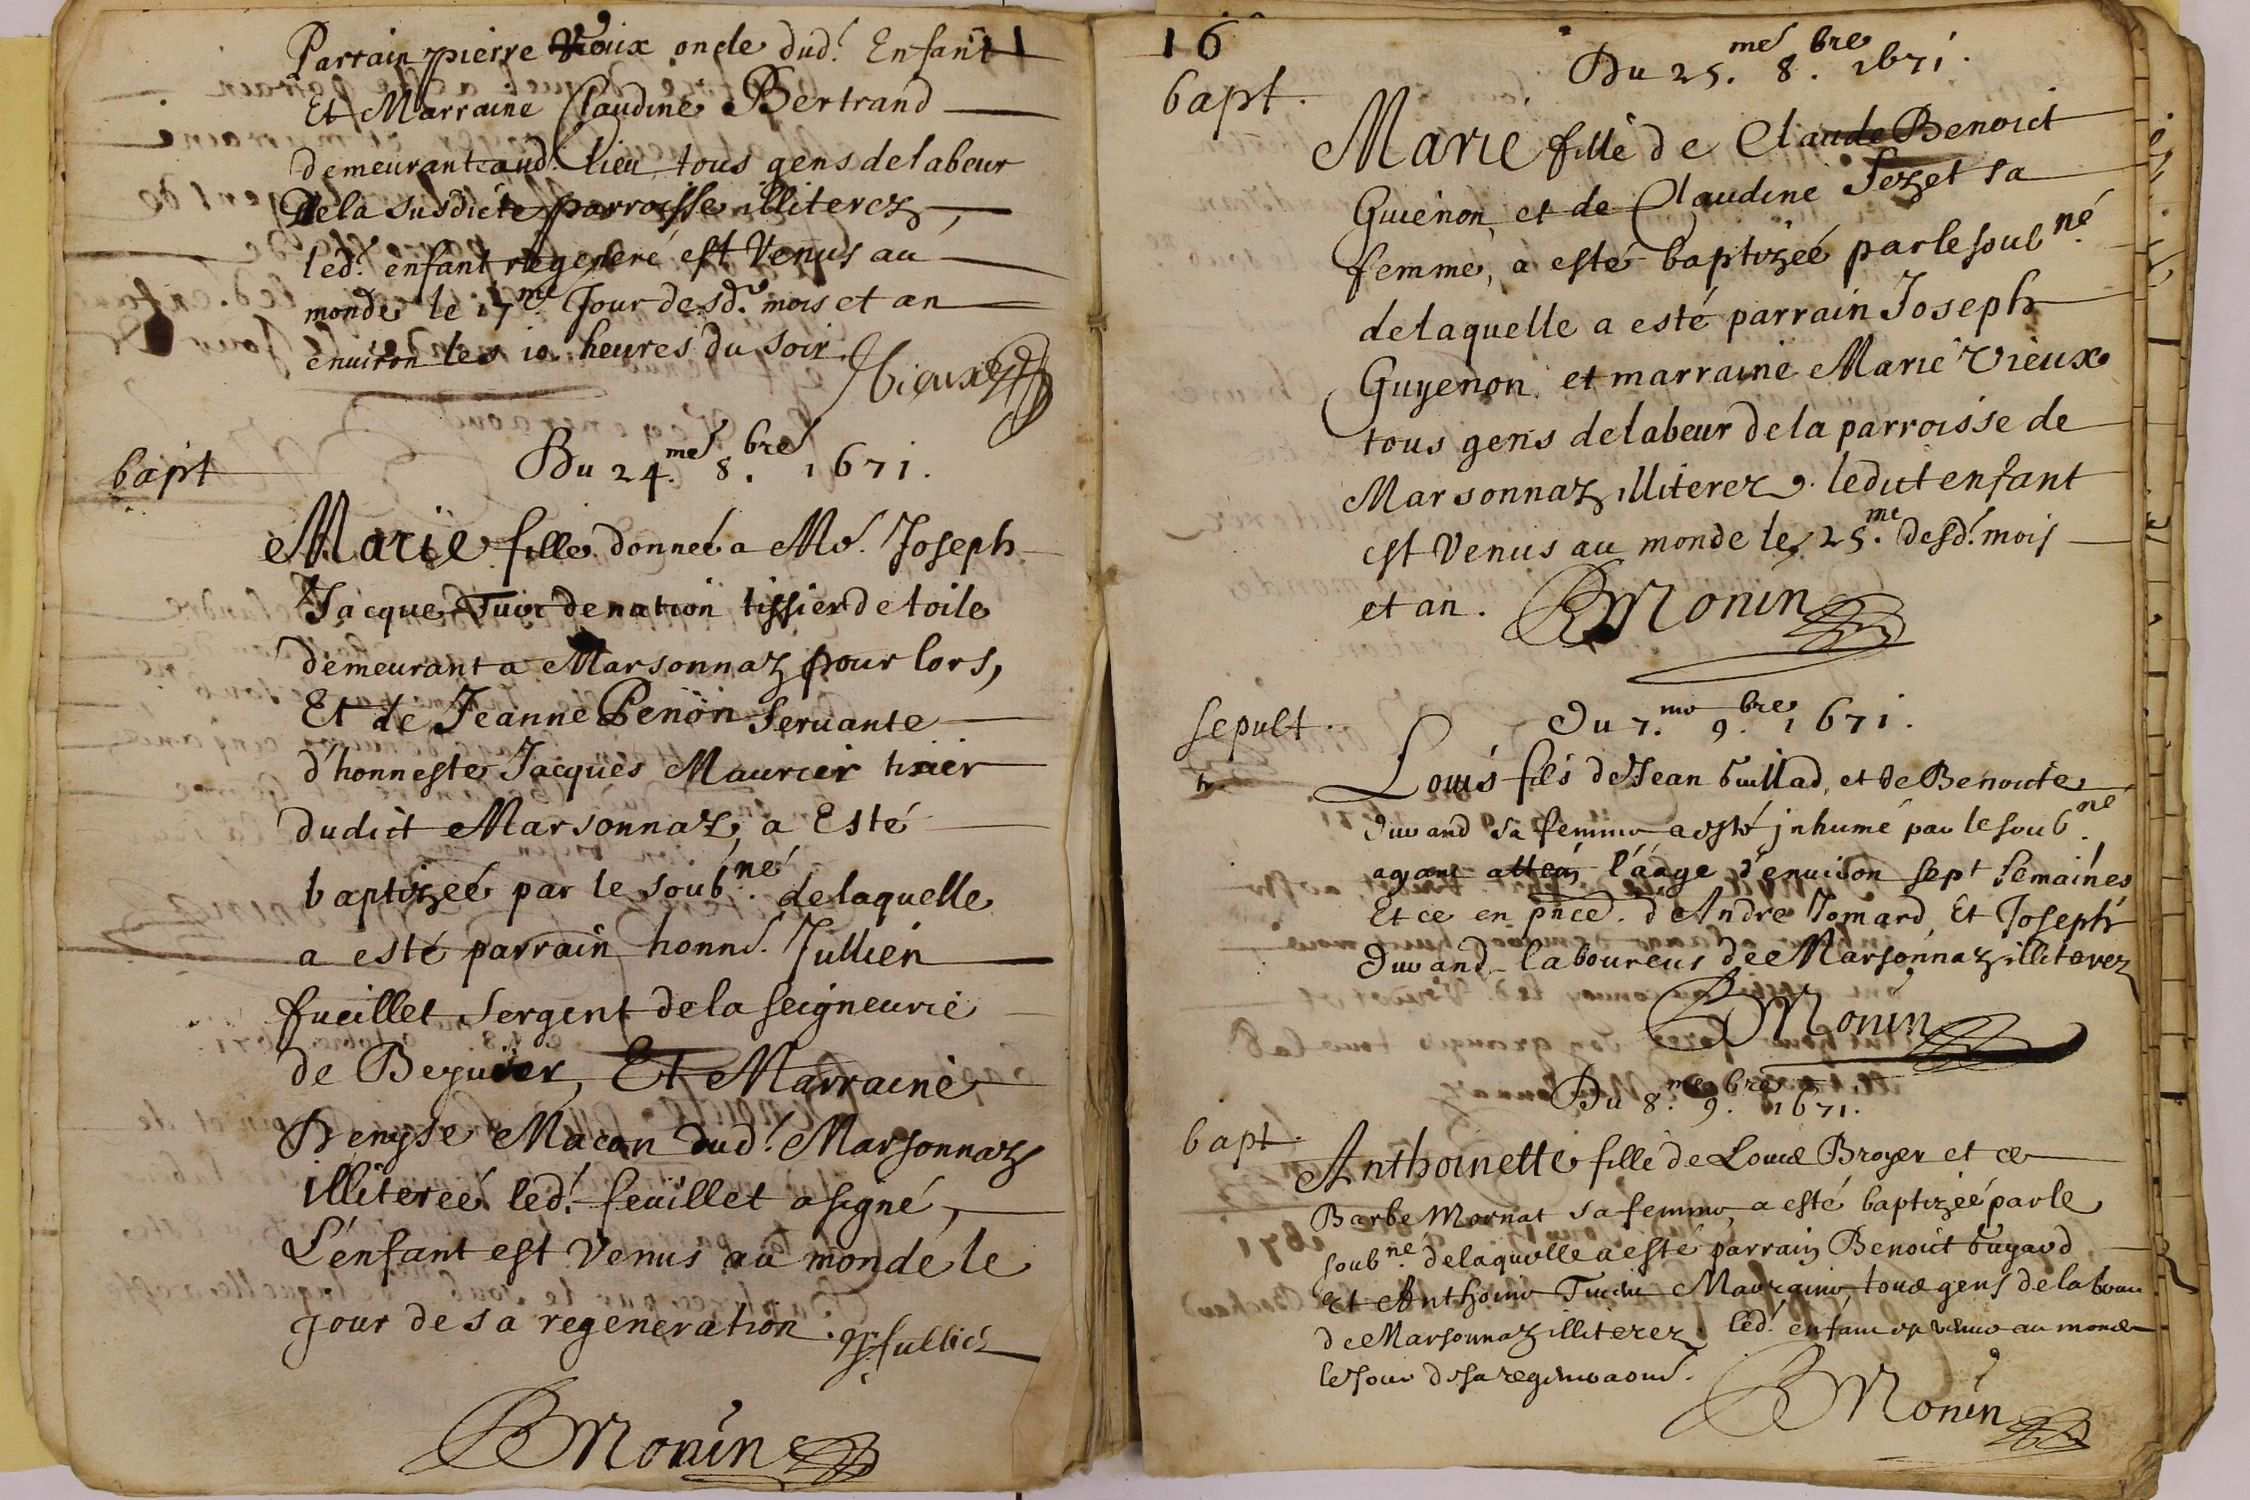 Parrain pierre Vieux oncle dud.t Enfant
Et Marraine Claudine Bertrand
demeurant aud. lieu tous gens de labeur
de la susdicte parroisse illiterez,
led. enfant regeneré est Venus au
monde le 17.me Jour desd. mois et an
enuiron les 10. heures du soir.
Vieux
bapt
Du 24.me 8.bre 1671.
Marie fille donneé a Me. Joseph
Jacque Juif de nation tissier de toile
demeurant a Marsonnaz pour lors,
Et de Jeanne Penon seruante
d'honneste Jacques Maurier tixier
dudict Marsonnaz, a Esté
baptizeé par le soub.né de laquelle
a esté parrain honn. Jullien
fueillet sergent de la seigneurie
de Beyuier, Et Marraine
Denyse Macon dud.t Marsonnaz
illitereé. led.t feuillet a signé,
L'enfant est Venus au monde le
jour de sa regeneration.
BMonin
16
bapt.
Du 25.me 8.bre 1671.
Marie fille de Claude Benoict
Guienon, et de Claudine Sezet sa
femme, a esté baptizeé par le soub.né
de laquelle a esté parrain Joseph
Guyenon. et marraine Marie Vieux
tous gens de labeur de la parroisse de
Marsonnaz illiterez. ledict enfant
est Venus au monde le 25.me desd. mois
et an. BMonin
sepult.
Du 7.me 9.bre 1671.
Louis fils de Jean buillad, et de Benoicte
Duuand sa femme a esté jnhumé par le soub.né
ayant l'áage d'enuiron sept semaines
Et ce en pnce. d'Andre Jomard, Et Joseph
Duuand laboureurs de Marsonnaz illiterez
BMonin
Du 8.me 9.bre 1671.
bapt.
Anthoinette fille de Louis Broyer et de
Barbe Mornat sa femme, a esté baptizeé par le
soub.né de laquelle a esté parrain Benoict buyard
Et Anthoine Marraine, tous gens de labeur
de Marsonnaz illiterez. led. enfant est venus au monde
le Jour de sa regeneraon.
BMonin